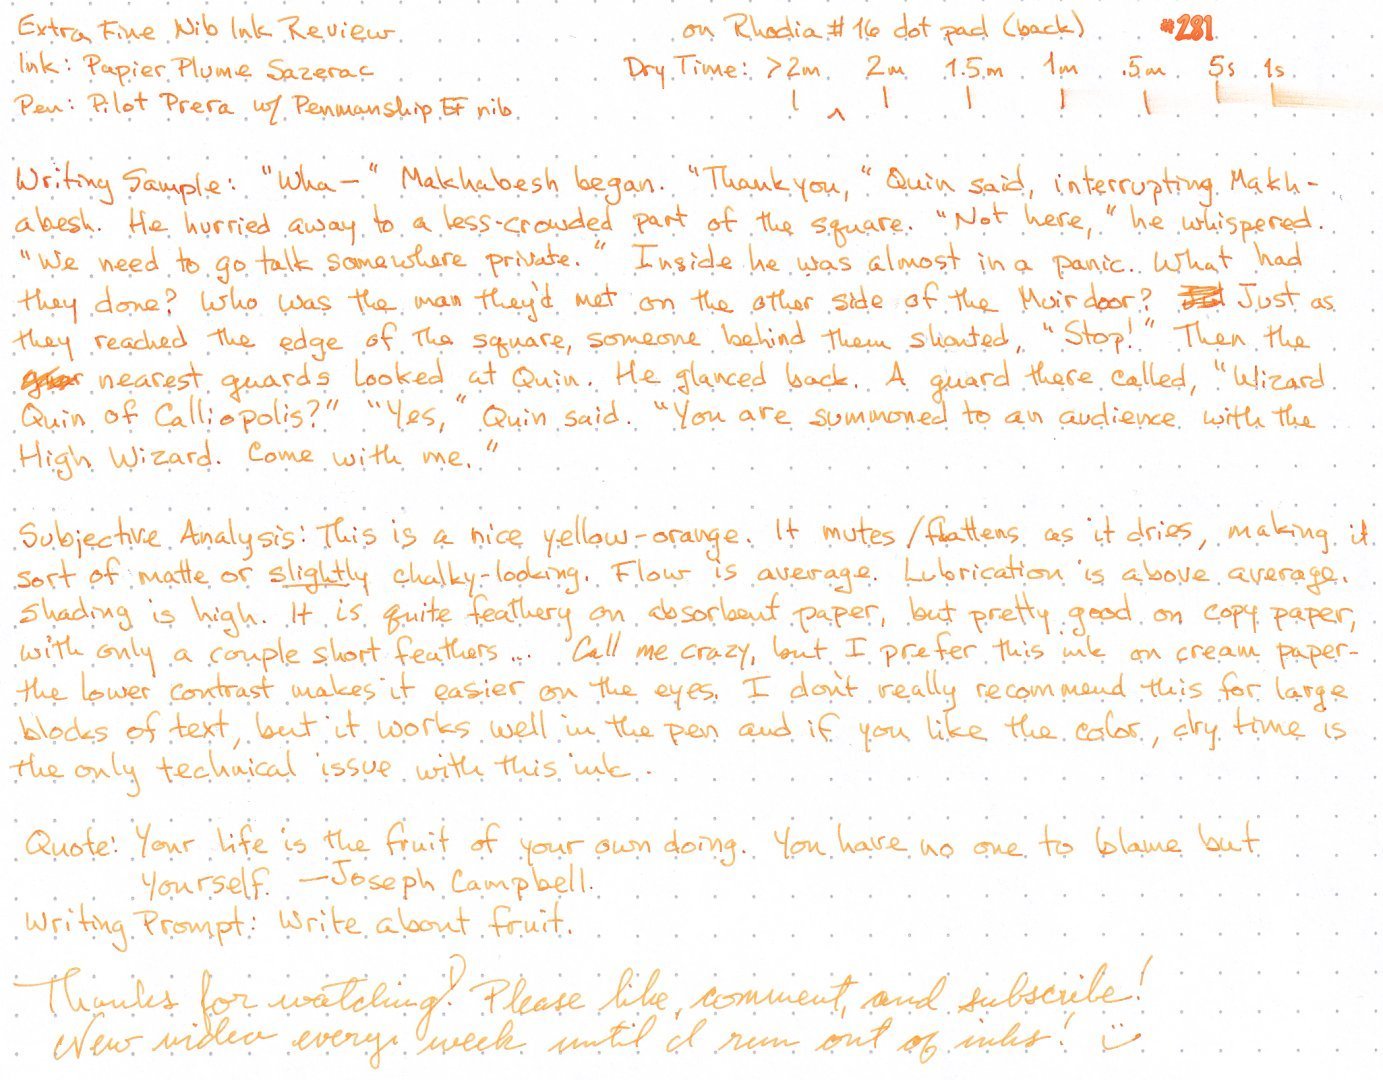 Extra Fine Nib Ink Review on Rhodia #16 dot pad (back) #281
Ink: Papier Plume Sazerac Dry Time: >2m 2m 1.5m 1m .5m 5s 1s
Pen: Pilot Prera w/ Penmanship EF nib
Writing Sample: "Wha—" Makhabesh began. "Thank you," Quin said, interrupting Makh-
abesh. He hurried away to a less-crowded part of the square. "Not here," he whispered.
"We need to go talk somewhere private." Inside he was almost in a panic. What had
they done? Who was the man they'd met on the other side of the Muirdoor? Just as
they reached the edge of the square, someone behind them shouted, "Stop!" Then the
nearest guards looked at Quin. He glanced back. A guard there called, "Wizard
Quin of Calliopolis?" "Yes," Quin said. "You are summoned to an audience with the
High Wizard. Come with me."
Subjective Analysis: This is a nice yellow-orange. It mutes/flattens as it dries, making it
sort of matte or slightly chalky-looking. Flow is average. Lubrication is above average.
Shading is high. It is quite feathery on absorbent paper, but pretty good on copy paper,
with only a couple short feathers... Call me crazy, but I prefer this ink on cream paper-
the lower contrast makes it easier on the eyes. I don't really recommend this for large
blocks of text, but it works well in the pen and if you like the color, dry time is
the only technical issue with this ink.
Quote: Your life is the fruit of your own doing. You have no one to blame but
yourself. —Joseph Campbell.
Writing Prompt: Write about fruit.
Thanks for watching! Please like, comment, and subscribe!
New video every week until I run out of inks!